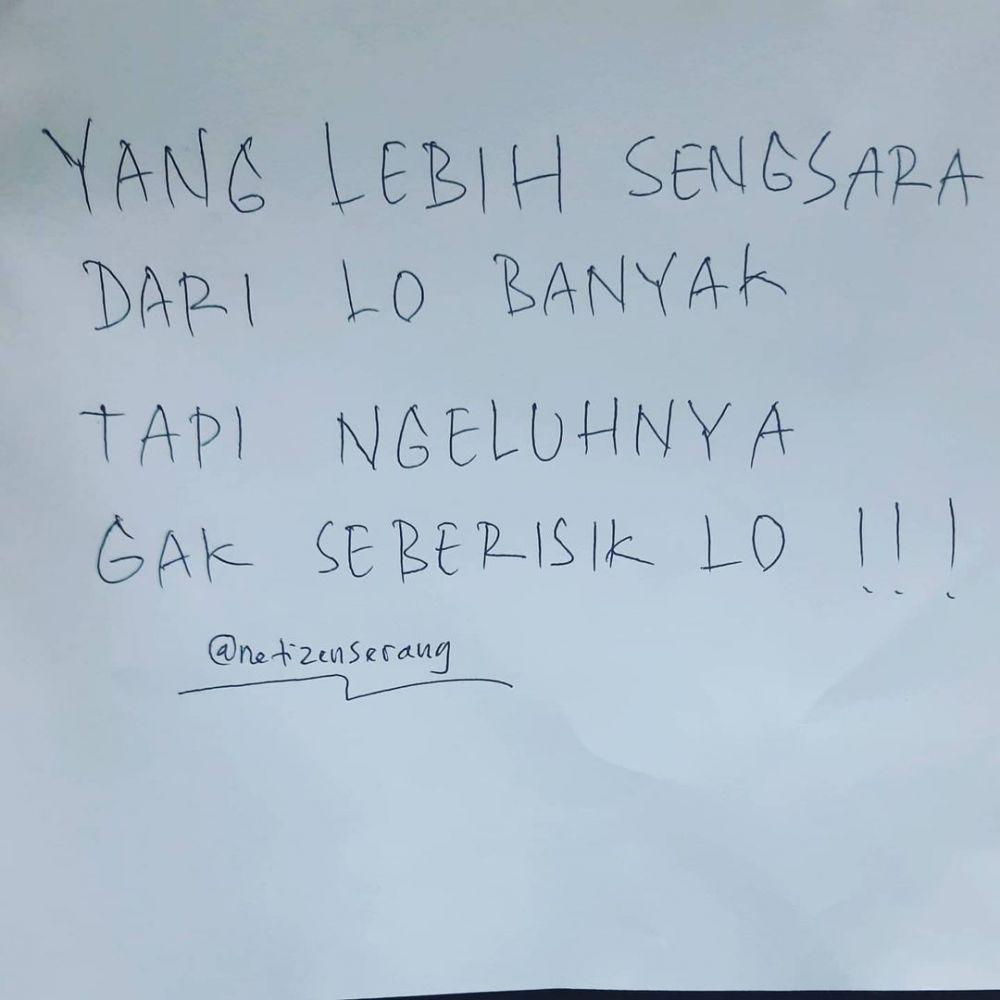 YANG LEBIH SENGSARA
DARI LO BANYAK
TAPI NGELUHNYA
GAK SEBERISIK LO !!!
@netizenserang